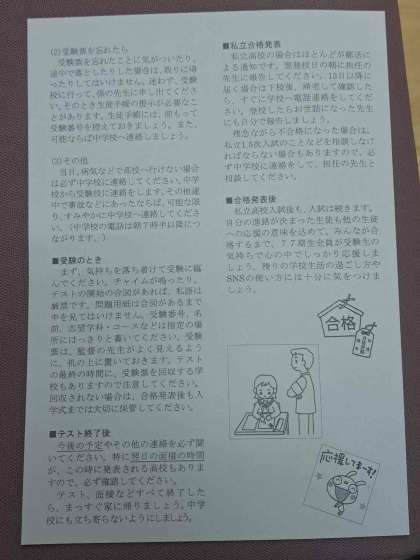 (2)受験票を忘れたら
受験票を忘れたことに気がついたり、
途中で落としたりした場合は、取りに帰
ったりしてはいけません。迷わず、受験
校に行って、係の先生に申し出てくださ
い。そのとき生徒手帳の提示が必要なこ
とがあります。生徒手帳には、前もって
受験番号を控えておきましょう。また、
可能ならば中学校へ連絡しましょう。
(3)その他
当日、病気などで高校へ行けない場合
は必ず中学校に連絡してください。中学
校から受験校に連絡をします。その他途
中で事故などにあったならば、可能な限
り、すみやかに中学校へ連絡してくださ
い。(中学校の電話は朝7時半以降につ
ながります。)
■受験のとき
まず、気持ちを落ち着けて受験に臨
んでください。チャイムが鳴ったり、
テストの開始の合図があれば、私語は
厳禁です。問題用紙は合図があるまで
中を見てはいけません。受験番号、名
前、志望学科・コースなどは指定の場
所にはっきりと書いてください。受験
票は、監督の先生がよく見えるよう
に、机の上に置いておきます。テスト
の最終の時間に、受験票を回収する学
校もありますので注意してください。
回収されない場合は、合格発表後も入
学式までは大切に保管してください。
■テスト終了後
今後の予定やその他の連絡を必ず聞
いてください。特に翌日の面接の時間
が、この時に発表される高校もありま
すので、必ず確認してください。
テスト、面接などすべて終了した
ら、まっすぐ家に帰りましょう。中学
校にも立ち寄らないようにしましょう。
■私立合格発表
私立高校の場合はほとんどが郵送に
よる通知です。翌登校日の朝に担任の
先生に報告してください。13日以降に
届く場合は下校後、帰宅して確認した
ら、すぐに学校へ電話連絡をしてくだ
さい。登校したらお世話になった先生
にも自分で報告しましょう。
残念ながら不合格になった場合は、
私立1.5次入試のことなどを相談しなけ
ればならない場合もありますので、必
ず中学校に連絡をして、担任の先生と
相談してください。
■合格発表後
私立高校入試後も、入試は続きます。
自分の進路が決まった生徒も他の生徒
への応援の意味を込めて、みんなが合
格するまで、77期生全員が受験生の
気持ちで心の中でしっかり応援しまし
ょう。残りの学校生活の過ごし方や
SNSの使い方には十分に気をつけま
しょう。
合格
応援してまーす!